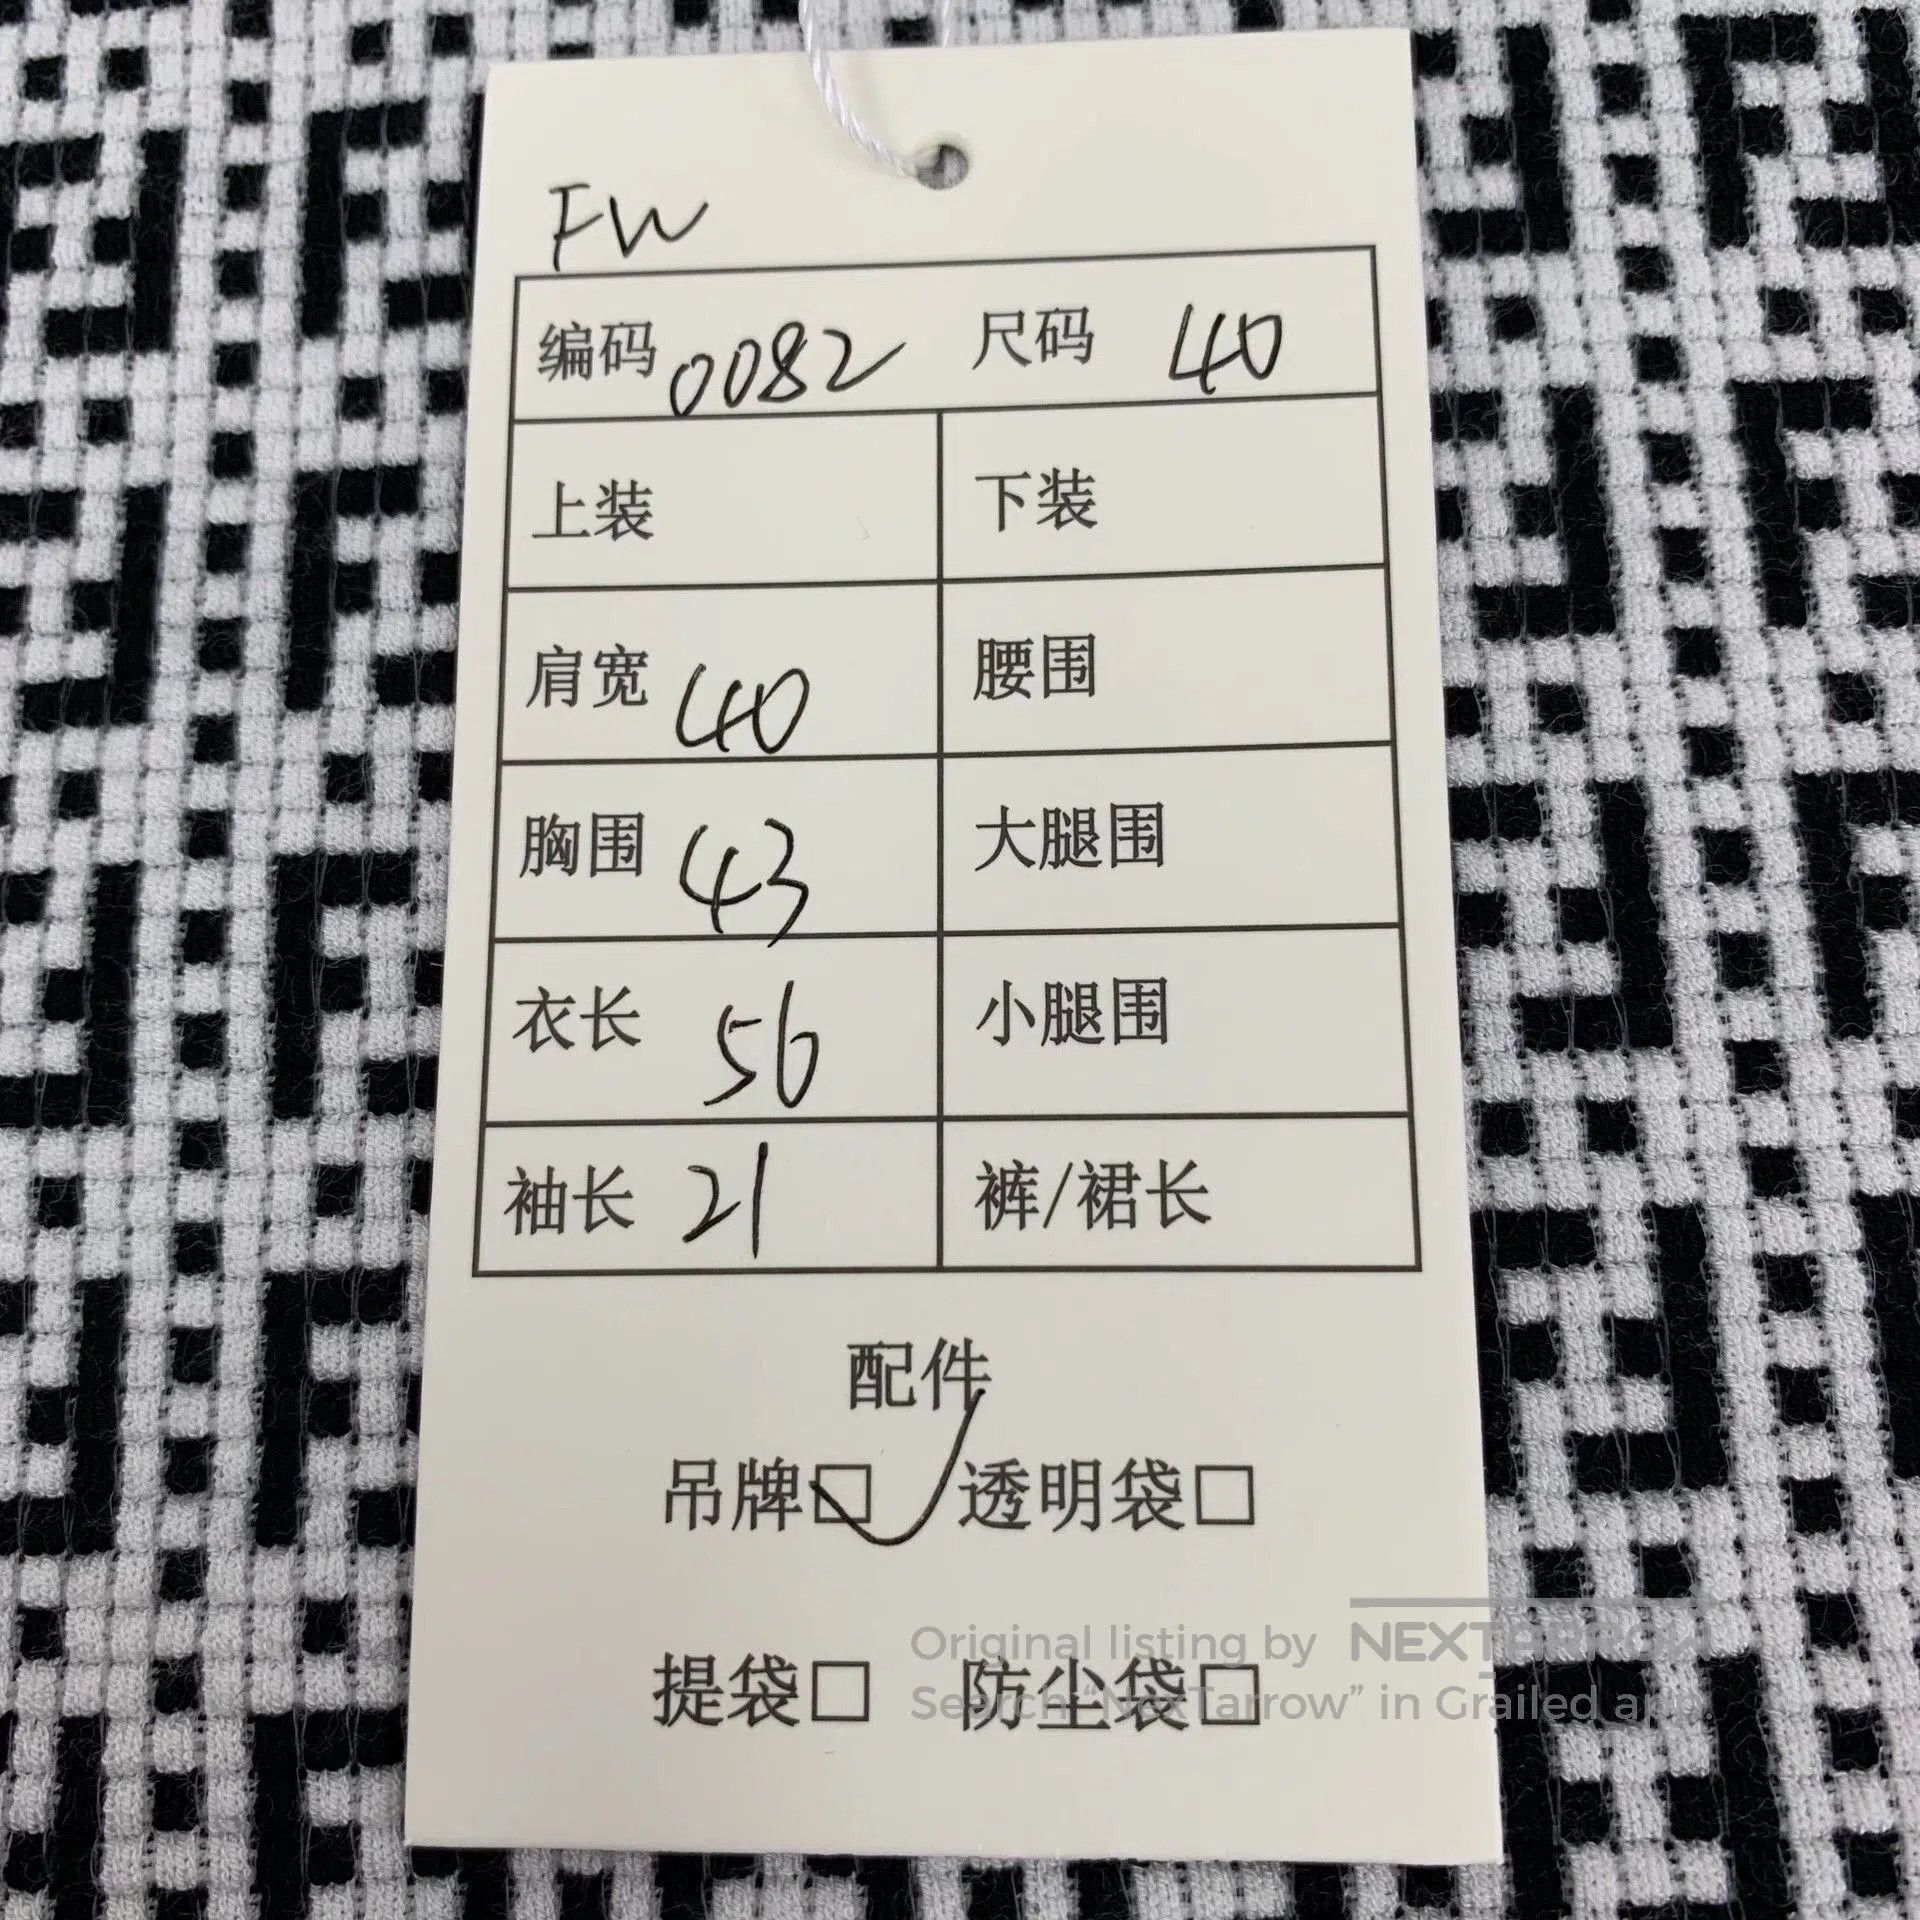 FW
编码 0082 尺码 40
上装 下装
肩宽 40 腰围
胸围 43 大腿围
衣长 56 小腿围
袖长 21 裤/裙长
配件
吊牌☑ 透明袋□
提袋□ 防尘袋□
Original listing by NEXTARROW
Search “NexTarrow” in Grailed app.